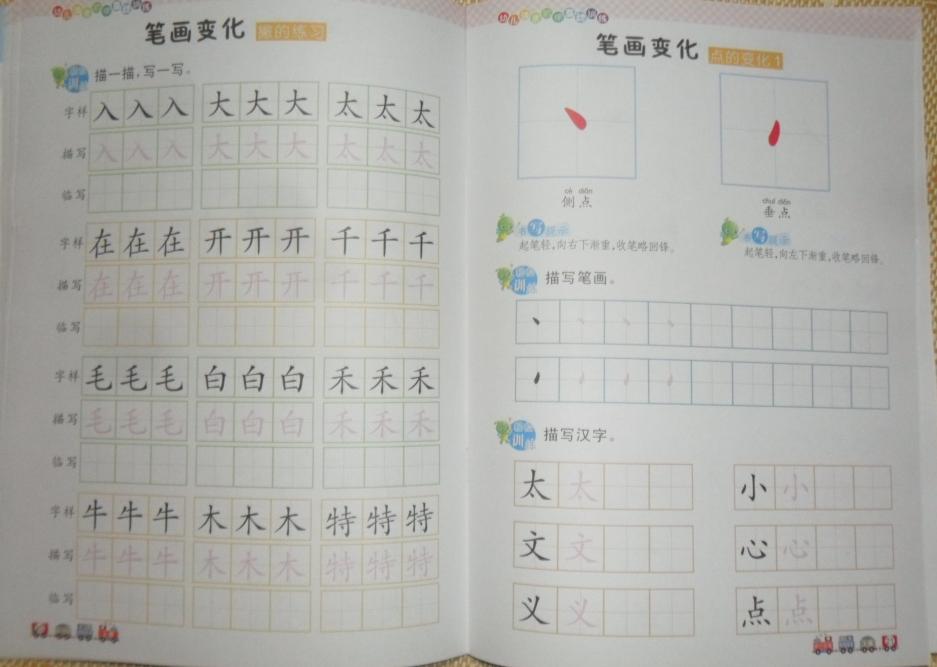 笔画变化 撇的练习
描一描,写一写。
字样 入入入 大大大 太太太
描写 入入入 大大大 太太太
临写
字样 在在在 开开开 千千千
描写 在在在 开开开 千千千
临写
字样 毛毛毛 白白白 禾禾禾
描写 毛毛毛 白白白 禾禾禾
临写
字样 牛牛牛 木木木 特特特
描写 牛牛牛 木木木 特特特
临写
笔画变化 点的变化1
cè diǎn
侧点
书写提示
起笔轻,向右下渐重,收笔略回锋。
chuí diǎn
垂点
书写提示
起笔轻,向左下渐重,收笔略回锋。
描写笔画。
描写汉字。
太太 小小
文文 心心
义义 点点